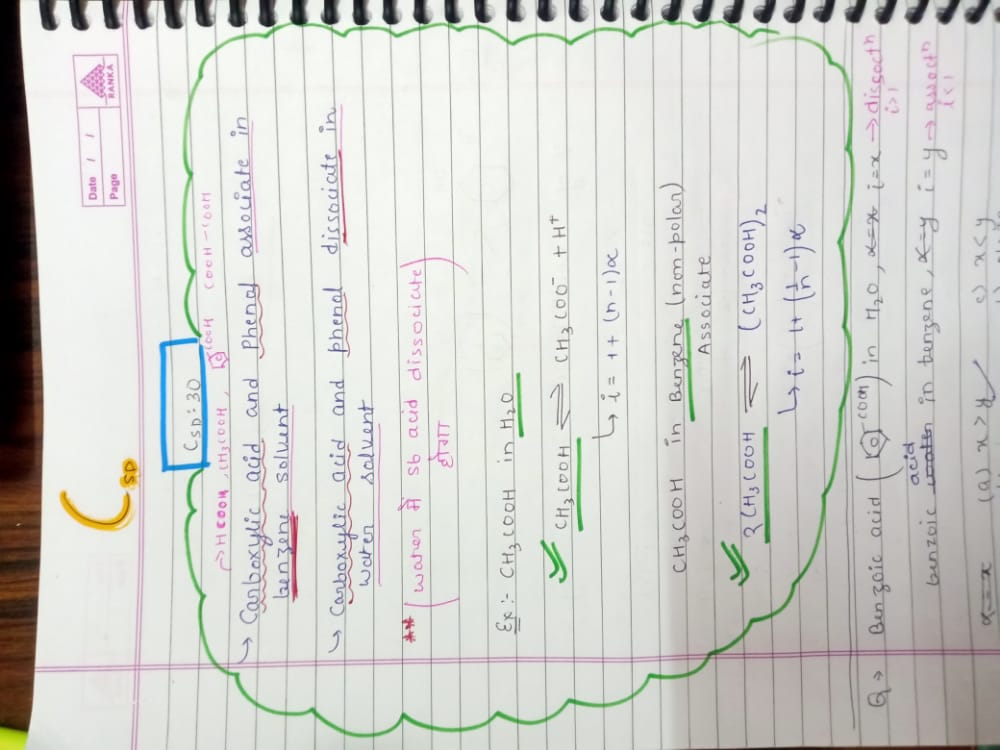 Date / /
Page
RANKA
CSD
CSD: 30
→ HCOOH, CH₃COOH, COOH COOH-COOH
→ Carboxylic acid and Phenol associate in
benzene solvent
→ Carboxylic acid and phenol dissociate in
water solvent
** (water में sb acid dissociate
होगा)
Ex:- CH₃COOH in H₂O
CH₃COOH ⇌ CH₃COO⁻ + H⁺
↳ i = 1 + (n-1)α
CH₃COOH in Benzene (non-polar)
Associate
2CH₃COOH ⇌ (CH₃COOH)₂
↳ i = 1 + (1/n -1)α
Q → Benzoic acid (COOH) in H₂O, α=x i=x → dissocⁿ
i>1
acid
benzoic in benzene, α=y i=y → assocⁿ
i<1
α=x (a) x>y c) x<y